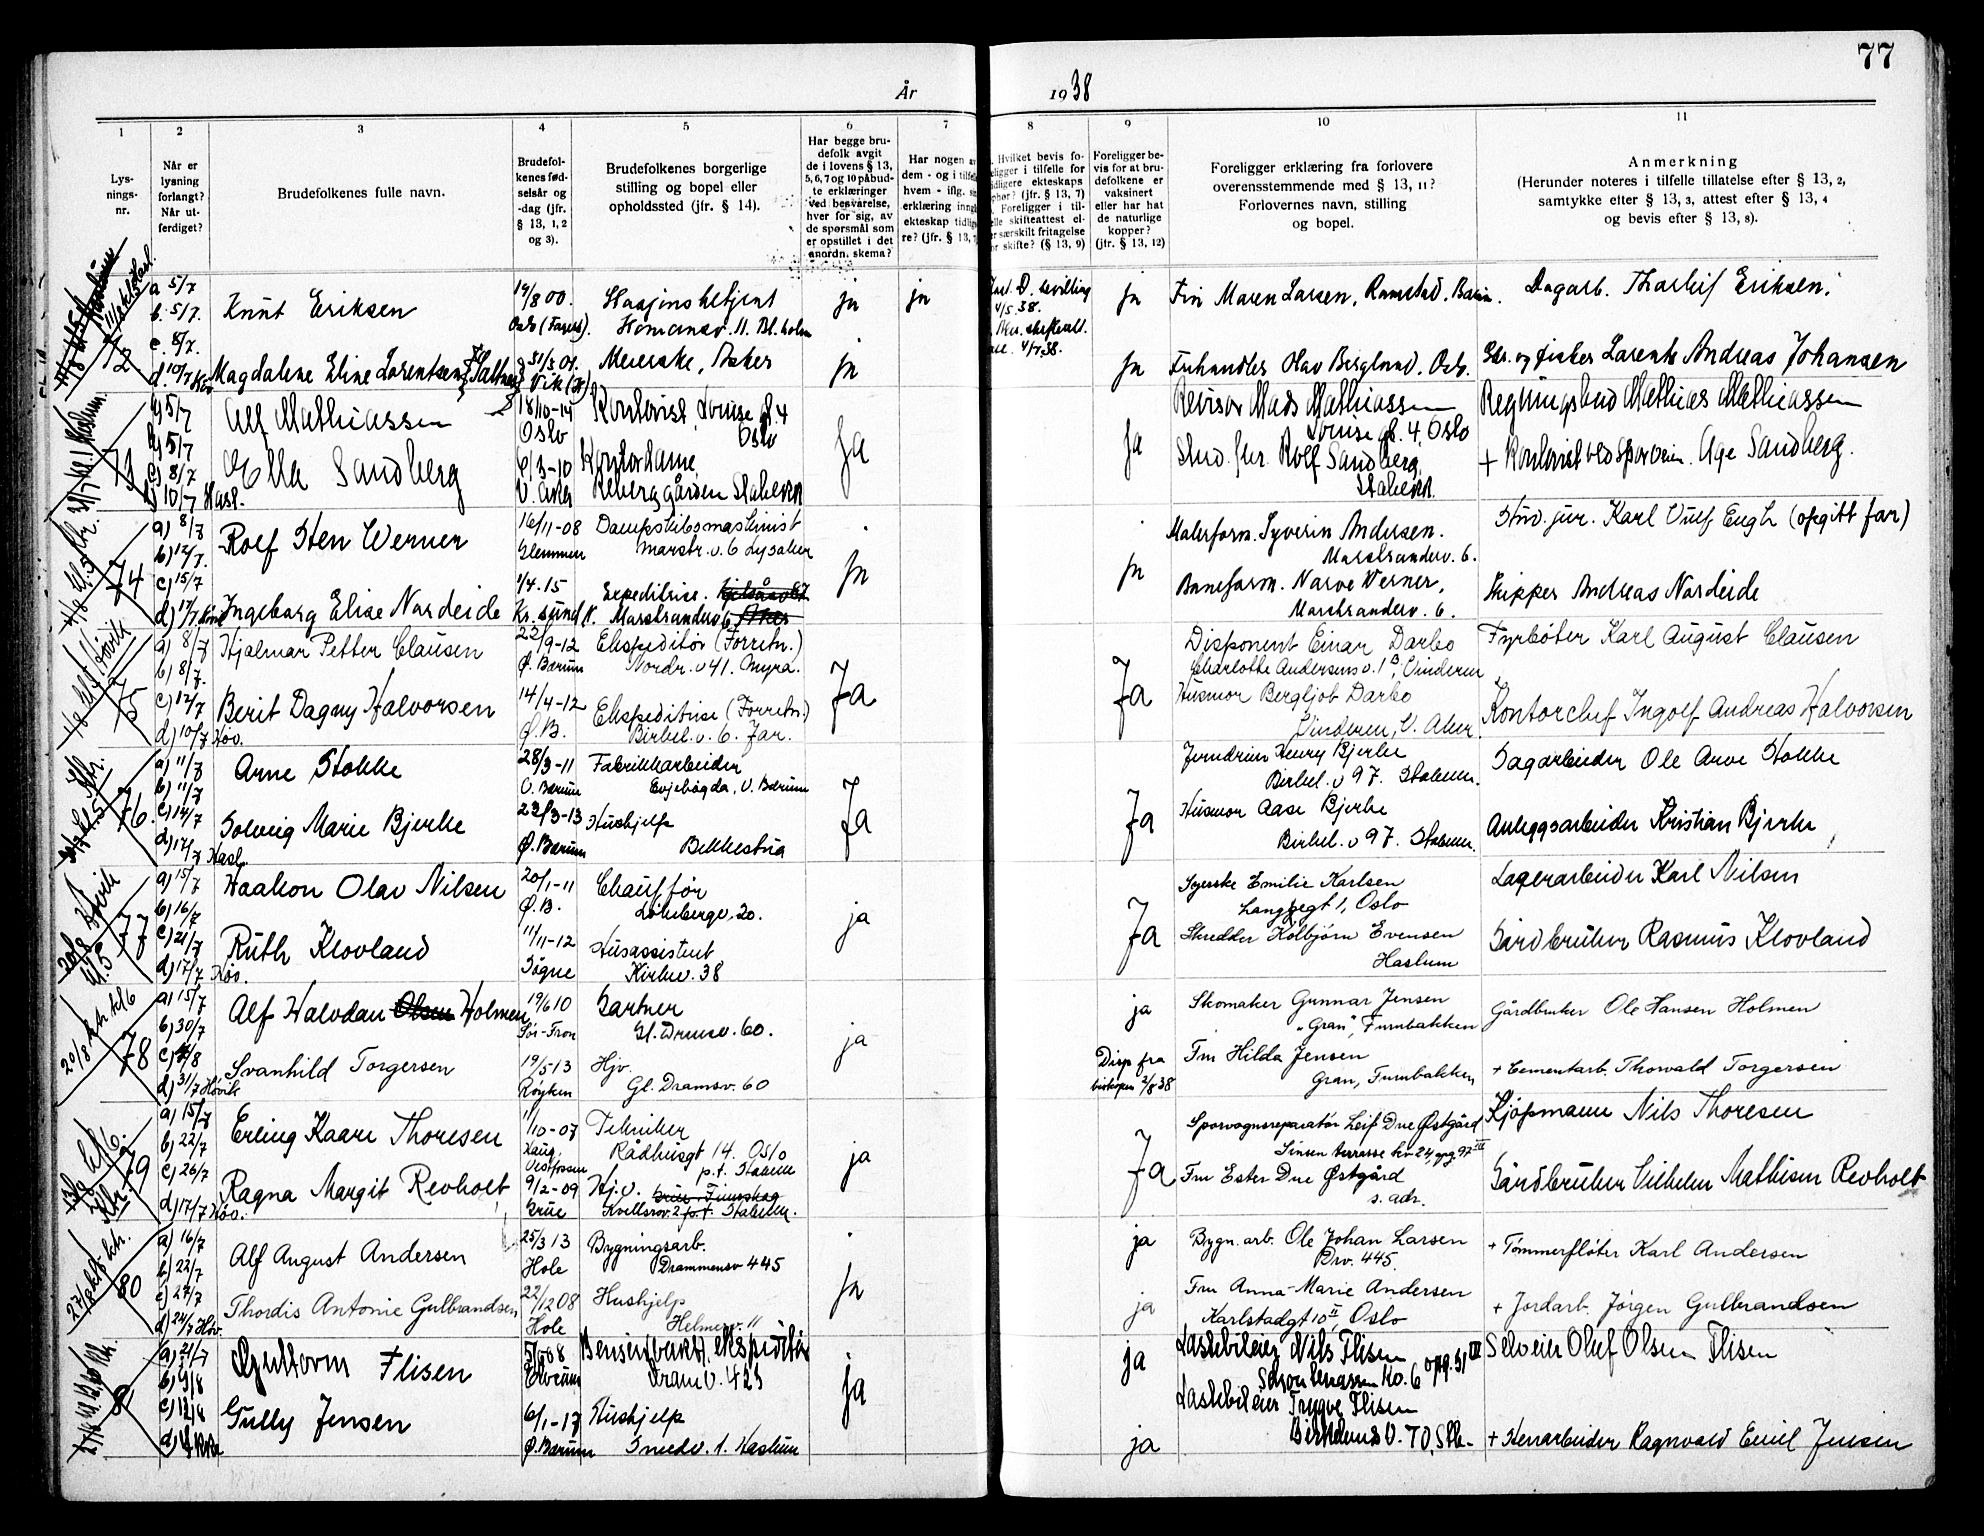 77
År 1938
1 2 3 4 5 6 7 8 9 10 11
Lys-
nings-
nr.
Når er
lysning
forlangt?
Når ut-
ferdiget?
Brudefolkenes fulle navn.
Brudefol-
kenes fød-
selsår og
-dag (jfr.
§ 13, 1, 2
og 3).
Brudefolkenes borgerlige
stilling og bopel eller
opholdssted (jfr. § 14).
Har begge bru-
defolk avgit
de i lovens § 13,
5, 6, 7 og 10 påbud-
te erklæringer
ved besvarelse,
hver for sig, av
de spørsmål som
er opstillet i det
anordn. skema?
Har nogen
dem - og i
hvem - iflg.
erklæring
ekteskap
re? (jfr. § 13,
Hvilket bevis fo-
i tilfelle for
ekteskaps
(jfr. § 13, 7)
Foreligger i til-
skifteattest el-
særskilt fritagelse
skifte? (§ 13, 9)
Foreligger be-
vis for at bru-
defolkene er
vaksinert
eller har hat
de naturlige
kopper?
(jfr. § 13, 12)
Foreligger erklæring fra forlovere
overensstemmende med § 13, 11?
Forlovernes navn, stilling
og bopel.
Anmerkning
(Herunder noteres i tilfelle tillatelse efter § 13, 2,
samtykke efter § 13, 3, attest efter § 13, 4
og bevis efter § 13, 8).
a 5/7
b. 5/7.
c. 8/7.
d. 10/7
Knut Eriksen
19/8 00.
Homansv. 11. Bl.holm
ja ja
bevilling
4/5 38.
ja
Maren Larsen, Ramstad,
Dagarb. Thorleif Eriksen.
Magdalene Eline Lorentsen
31/3 01.
Vik
Meierske, Asker
ja
ja
Olav Berglund, Oslo.
Lorents Andreas Johansen
73
a) 5/7
b) 5/7
c) 8/7
d) 10/7 Hasl.
Alf Mathiassen
18/10-14
Oslo
Kontorist, Louise gt. 4
Oslo
Ja
Ja
Revisor Mads Mathiassen
Louise gt. 4, Oslo
Regningsbud Mathias Mathiassen
Ella Sandberg
6/3-10
V. Aker
Kontordame,
Stabekk
Stud. jur. Rolf Sandberg,
Stabekk.
+ Kontorist ved sporveien. Åge Sandberg.
74
a) 8/7
b) 12/7.
c) 15/7
d) 17/7
Rolf Sten Werner
16/11-08
Glemmen
Dampskibsmaskinist
Marstr. v. 6 Lysaker
ja
ja
Malerform. Syverin Andersen.
Marstranderv. 6.
Stud. jur. Karl Vulf Engh (opgitt far)
Ingeborg Elise Nordeide
1/4.15
Kr. sund N.
Expeditrise.
Marstranderv 6
Baneform. Narve Werner,
Marstranderv. 6.
Skipper Andreas Nordeide
75
a) 8/7
b) 8/7.
c) 12/7
d) 10/7 Høv.
Hjalmar Petter Clausen
22/9-12
Ø. Bærum
Ekspeditør (Forretn.)
Nordr. v 41. Myra.
Ja
Ja
Disponent Einar Darbo
Charlotte Andersens v. 1 B, Vinderen
Fyrbøter Karl August Clausen
Berit Dagny Halvorsen
14/4-12
Ø. B.
Ekspeditrise (Forretn.)
Birkel. v. 6. Jar.
Husmor Bergljot Darbo
Vinderen, V. Aker
Kontorchef Ingolf Andreas Halvorsen
76.
a) 11/7
b) 11/7
c) 14/7
d) 17/7 Hasl.
Arne Stokke
28/3-11
V. Bærum
Fabrikkarbeider
Evjebøgda, V. Bærum
Ja
Ja
Jerndreier Henry Bjerke
Birkel. v 97. Stabekk.
Sagarbeider Ole Arve Stokke
Solveig Marie Bjerke
22/3-13
Ø. Bærum
Hushjelp
Bekkestua
Husmor Aase Bjerke
Birkel. v 97. Stabekk.
Anleggsarbeider Kristian Bjerke
77
a) 15/7
b) 16/7
c) 21/7
d) 17/7 Høv.
Haakon Olav Nilsen
20/1-11
Ø. B.
Chauffør
Løkebergv. 20.
ja
Ja
Syerske Emilie Karlsen
Langgt 1, Oslo
Lagerarbeider Karl Nilsen
Ruth Klovland
11/11-12
Søgne
Husassistent
Kirkev. 38
Skredder Kolbjørn Evensen
Haslum
Gårdbruker Rasmus Klovland
78
a) 15/7
b) 30/7
d) 31/7 Høvik
Alf Halvdan Olsen Holmen
19/6 10
Sør-Fron
Gartner
Gl. Dramsv. 60.
ja
ja
Skomaker Gunnar Jensen
"Gran", Furubakken
Gårdbruker Ole Hansen Holmen
Svanhild Torgersen
19/5-13
Røyken
Hjv.
Gl. Dramsv. 60
Disp fra
biskopen 2/8 38
Fru Hilda Jensen
Gran, Furubakken
+ Cementarb. Thorvald Torgersen
79
a) 15/7
b) 22/7
c) 26/7
d) 17/7 Høv.
Erling Kaare Thoresen
1/10-07
Haug,
Vestfossen
Tekniker
Rådhusgt 14. Oslo
p.t. Stabekk
ja
Ja
Sporvognsreparatør Leif Due Østgård
Sinsen terrasse
Kjøpmann Nils Thoresen
Ragna Margit Revholt
9/2-09
Grue
Hj.v. Grue Finnskog
Kvellsrov. 2 p.t. Stabekk.
Fru Ester Due Østgård
s. adr.
Gårdbruker Vilhelm Mathisen Revholt
80
a) 16/7
b) 22/7
c) 27/7
d) 24/7 Høv.
Alf August Andersen
25/3 13
Hole
Bygningsarb.
Drammensv 445
ja
ja
Bygn. arb. Ole Johan Larsen
Drv. 445.
+ Tømmerfløter Karl Andersen
Thordis Antonie Gulbrandsen
22/12 08
Hole
Hushjelp
Helmerv. 11
ja
Fru Anna-Marie Andersen
Karlstadgt 10 II, Oslo
+ Jordarb. Jørgen Gulbrandsen
81
a) 21/7
b) 9/8
c) 12/8
Guttorm Flisen
Elverum
Bensin(vakt). ekspeditør
Dram v. 423
ja
ja
Lastebileier Nils Flisen
Selveier Oluf Olsen Flisen
Gully Jensen
6/1-17
Ø. Bærum
Hushjelp
Smedv. 1. Haslum
ja
Lastebileier Trygve Flisen
+ Stenarbeider Ragnvald Emil Jensen